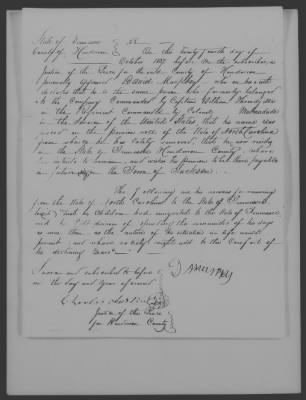 State of Tennessee
County of Henderson SS. On this twenty fourth day of
October 1837 before me the subscriber, a
Justice of the Peace for the said County of Henderson
personally appeared David Murphy who on his oath
declares that he is the same person who formerly belonged
to the Company Commanded by Captain William
in the Regiment Commanded by Colonel
in the Service of the United States that his name was
placed on the pension roll of the State of North Carolina
from whence he has lately removed, that he now resides
in the State of Tennessee Henderson County where
he intends to remain, and wishes his pension to be there payable
in future in the Town of Jackson.
The following are his reasons for removing
from the State of North Carolina to the State of Tennessee
that his Children had emigrated to the State of Tennessee
and he was desirous of spending the remainder of his days
as near them as the nature of his situation in life would
permit and where society might add to the Comfort of
his declining years
D Murphy
Sworn and subscribed to before
me the day and year aforesaid
Charles
Justice of the Peace
for Henderson County